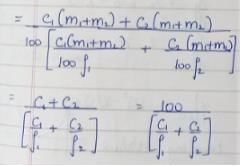 = C₁(m₁+m₂) + C₂(m₁+m₂)
100 [ C₁(m₁+m₂) / 100 ρ₁ + C₂(m₁+m₂) / 100 ρ₂ ]
= C₁+C₂ / [ C₁/ρ₁ + C₂/ρ₂ ] = 100 / [ C₁/ρ₁ + C₂/ρ₂ ]